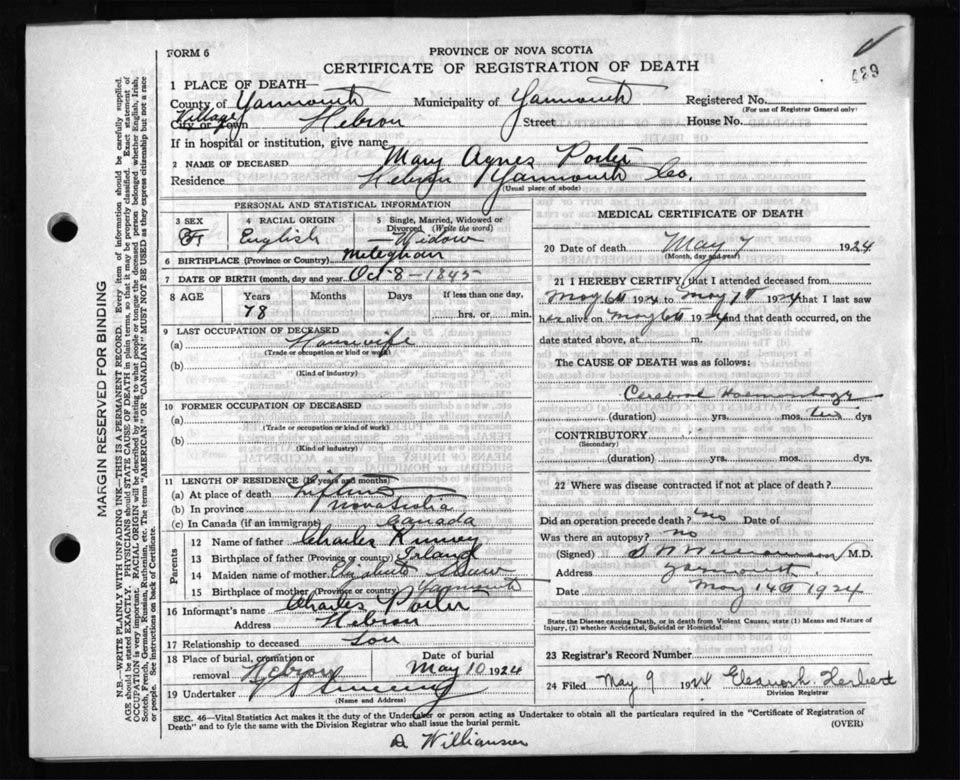 FORM 6
PROVINCE OF NOVA SCOTIA
CERTIFICATE OF REGISTRATION OF DEATH
489
1 PLACE OF DEATH—
County of Yarmouth Municipality of Yarmouth Registered No.
(For use of Registrar General only)
Village
City or Town Hebron Street House No.
If in hospital or institution, give name
2 NAME OF DECEASED Mary Agnes Porter
Residence Hebron Yarmouth Co.
(Usual place of abode)
PERSONAL AND STATISTICAL INFORMATION
3 SEX 4 RACIAL ORIGIN 5 Single, Married, Widowed or Divorced (Write the word)
F English Widow
6 BIRTHPLACE (Province or Country) Meteghan
7 DATE OF BIRTH (month, day and year) Oct-8-1845
8 AGE Years Months Days If less than one day,
78 hrs. or min.
9 LAST OCCUPATION OF DECEASED
(a) Housewife
(Trade or occupation or kind of work)
(b)
(Kind of industry)
10 FORMER OCCUPATION OF DECEASED
(a)
(Trade or occupation or kind of work)
(b)
(Kind of industry)
11 LENGTH OF RESIDENCE (In years and months)
(a) At place of death Lifetime
(b) In province Nova Scotia
(c) In Canada (if an immigrant) Canada
Parents
12 Name of father Charles Kinney
13 Birthplace of father (Province or country)
14 Maiden name of mother Elizabeth
15 Birthplace of mother (Province or country) Yarmouth
16 Informant's name Charles Porter
Address Hebron
17 Relationship to deceased Son
18 Place of burial, cremation or removal Hebron
Date of burial May 10 1924
19 Undertaker Sweeny
(Name and Address)
MEDICAL CERTIFICATE OF DEATH
20 Date of death May 7 1924
(Month, day and year)
21 I HEREBY CERTIFY, that I attended deceased from
May 6th 1924 to May 7th 1924 that I last saw
her alive on May 6th 1924 and that death occurred, on the
date stated above, at m.
The CAUSE OF DEATH was as follows:
Cerebral Haemorrhage
(duration) yrs. mos. two dys
CONTRIBUTORY
(Secondary)
(duration) yrs. mos. dys.
22 Where was disease contracted if not at place of death?
Did an operation precede death? No Date of
Was there an autopsy? No
(Signed) Williamson M.D.
Address Yarmouth
Date May 14th 1924
State the Disease causing Death, or in death from Violent Causes, state (1) Means and Nature of
Injury, (2) whether Accidental, Suicidal or Homicidal.
23 Registrar's Record Number
24 Filed May 9 1924 Eleanor L. Herbert
Division Registrar
SEC. 46—Vital Statistics Act makes it the duty of the Undertaker or person acting as Undertaker to obtain all the particulars required in the "Certificate of Registration of
Death" and to fyle the same with the Division Registrar who shall issue the burial permit.
(OVER)
D Williamson
MARGIN RESERVED FOR BINDING
N.B.—WRITE PLAINLY WITH UNFADING INK—THIS IS A PERMANENT RECORD. Every item of information should be carefully supplied.
AGE should be stated EXACTLY. PHYSICIANS should STATE CAUSE OF DEATH in plain terms, so that it may be properly classified. Exact statement of
OCCUPATION is very important. RACIAL ORIGIN will be described by stating to what people or tongue the deceased person belonged whether English, Irish,
Scotch, French, German, Russian, Ruthenian, etc. The terms "AMERICAN" OR "CANADIAN" MUST NOT BE USED as they express citizenship but not a race
or people. See instructions on back of Certificate.